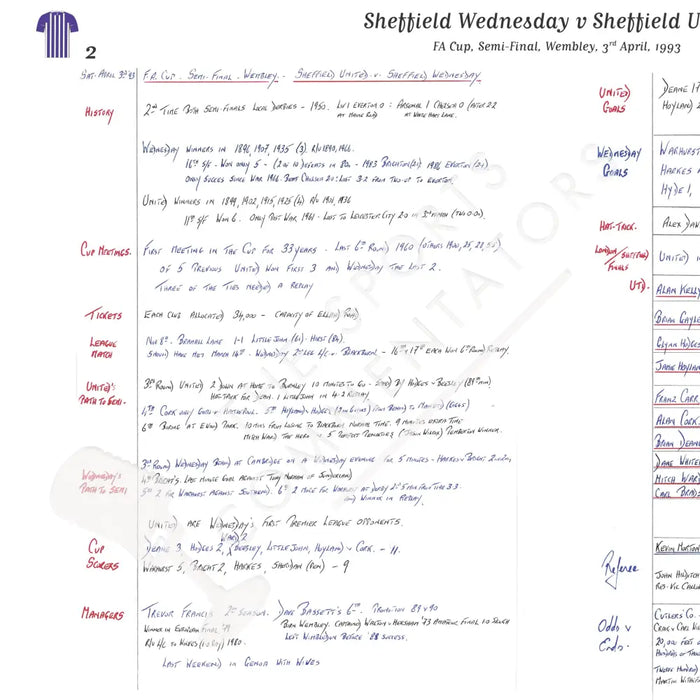 Sheffield Wednesday v Sheffield U
FA Cup, Semi-Final, Wembley, 3rd April, 1993
2
SAT. APRIL 3RD 93
F.A. CUP - SEMI-FINAL - WEMBLEY - SHEFFIELD UNITED v SHEFFIELD WEDNESDAY
HISTORY
2ND TIME BOTH SEMI-FINALS LOCAL DERBIES - 1950. LIV 1 EVERTON 0 : ARSENAL 1 CHELSEA 0 (AFTER 2.2
AT MAINE RD) AT WHITE HART LANE.
WEDNESDAY WINNERS IN 1896, 1907, 1935 (3) R/U 1890, 1966.
16TH S/F - WON ONLY 5 - (2 OR 3) DEFEATS IN 80s - 1983 BRIGHTON (2.1) 1986 EVERTON (2.1)
ONLY SUCCESS SINCE WAR 1966. BEAT CHELSEA 2.0: LOST 3.2 FROM TWO UP TO EVERTON.
UNITED WINNERS IN 1899, 1902, 1915, 1925 (4) R/U 1901, 1936
11TH S/F WON 6. ONLY POST WAR 1961 - LOST TO LEICESTER CITY 2.0 IN 3RD MATCH (TWO 0.0).
CUP MEETINGS.
FIRST MEETING IN THE CUP FOR 33 YEARS - LAST 6TH ROUND 1960 (OTHERS 1900, 25, 28, 54)
OF 5 PREVIOUS UNITED WON FIRST 3 AND WEDNESDAY THE LAST 2.
THREE OF THE TIES NEEDED A REPLAY
TICKETS
EACH CLUB ALLOCATED 34,000 - CAPACITY OF ELLAND ROAD.
LEAGUE
MATCH
NOV 8TH. BRAMALL LANE 1-1 LITTLEJOHN (61) HIRST (84)
SHOULD HAVE MET MARCH 14TH. WEDNESDAY 2ND LEG L/C v BLACKBURN - 16TH + 17TH EACH WON 6TH ROUND REPLAY.
UNITED'S
PATH TO SEMI-
3RD ROUND UNITED 2 DOWN AT HOME TO BURNLEY 10 MINUTES TO GO - SAVED BY HODGES + BEESLEY (89TH MIN)
HAT-TRICK FOR DEANE. 1 LITTLEJOHN IN 4-2 REPLAY
4TH CORK ONLY GOAL v HARTLEPOOL. 5TH HOYLAND + HODGES
6TH BLACKBURN REPLAY. PENALTIES WINNER.
WEDNESDAY'S
PATH TO SEMI
3RD ROUND WEDNESDAY BEHIND AT CAMBRIDGE ON A WEDNESDAY EVENING FOR 5 MINUTES - HARKES + BRIGHT 2.1 WIN.
4TH BRIGHT'S LAST MINUTE GOAL AGAINST TONY NORMAN OF SUNDERLAND
5TH 2 FOR WARHURST AGAINST SOUTHEND. 6TH 2 MORE FOR WARHURST AT DERBY 3.3
AND WINNER IN REPLAY.
UNITED ARE WEDNESDAY'S FIRST PREMIER LEAGUE OPPONENTS.
CUP
SCORERS
WARD 2
DEANE 3, HODGES 2, BEESLEY, LITTLEJOHN, HOYLAND + CORK. - 11.
WARHURST 5, BRIGHT 2, HARKES, SHERIDAN (PEN) - 9
MANAGERS
TREVOR FRANCIS 2ND SEASON. DAVE BASSETT'S 6TH. PROMOTION 89 + 90
WINNER IN EUROPEAN FINAL '79 BORN WEMBLEY. CAPTAINED WALTON + HERSHAM '73 AMATEUR FINAL 1.0 SLOUGH
R/U L/C TO WOLVES (1.0 LOSS) 1980. LEFT WIMBLEDON BEFORE '88 SUCCESS.
LAST WEEKEND IN GENOA WITH WIVES
UNITED
GOALS
DEANE 17
HOYLAND 2
WEDNESDAY
GOALS
WARHURST
HARKES
HYDE 1,
HAT-TRICK.
ALEX DAV
LONDON/SHEFFIELD
FINALS
UNITED
UTD-
ALAN KELLY
BRIAN GAYLE
GLYN HODGES
JAMIE HOYLAN
FRANZ CARR
ALAN CORK.
BRIAN DEANE
DANE WHITE
MITCH WAR
CARL BRAD
KEVIN MORTON
Referee
JOHN HILDITCH
RES. VIC CALLOW
Odds v
Ends.
CUTLER'S CO.
CRAIG + CARL WE
20,000 FEET
HUNDREDS OF THOU
TWELVE HUNDRED
MARTIN WITH
THE SPORTS
COMMENTATORS